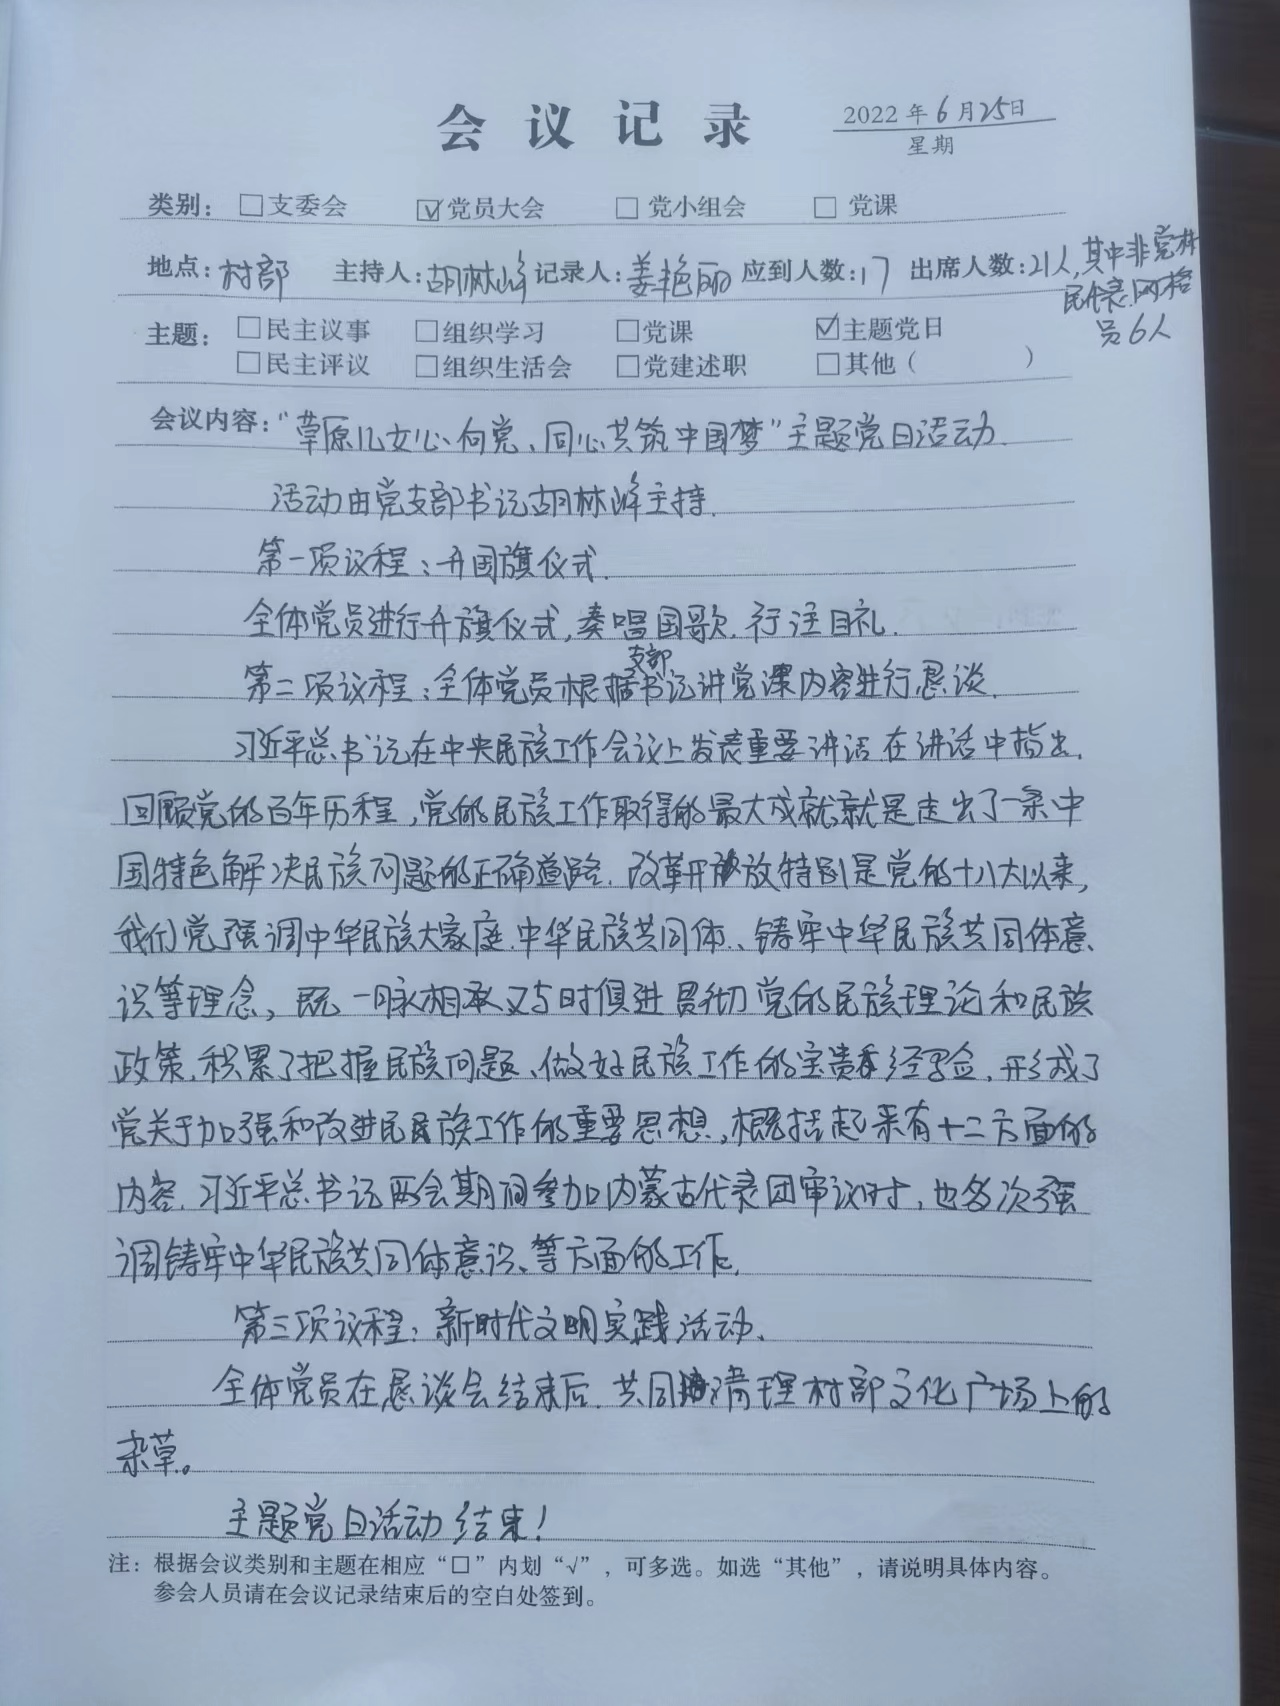 会议记录
2022年6月25日
星期
类别：□支委会 ☑党员大会 □党小组会 □党课
地点：村部 主持人：胡林峰 记录人：姜艳丽 应到人数：17 出席人数：21人，其中非党村
民代表、网格
员6人
主题：□民主议事 □组织学习 □党课 ☑主题党日
□民主评议 □组织生活会 □党建述职 □其他（ ）
会议内容：“草原儿女心向党、同心共筑中国梦”主题党日活动.
活动由党支部书记胡林峰主持.
第一项议程：升国旗仪式.
全体党员进行升旗仪式，奏唱国歌.行注目礼.
第二项议程：全体党员根据支部书记讲党课内容进行恳谈.
习近平总书记在中央民族工作会议上发表重要讲话.在讲话中指出.
回顾党的百年历程，党的民族工作取得的最大成就，就是走出了一条中
国特色解决民族问题的正确道路.改革开放特别是党的十八大以来，
我们党强调中华民族大家庭.中华民族共同体、铸牢中华民族共同体意
识等理念，既一脉相承又与时俱进贯彻党的民族理论和民族
政策.积累了把握民族问题、做好民族工作的宝贵经验，形成了
党关于加强和改进民族工作的重要思想，概括起来有十二方面的
内容.习近平总书记两会期间参加内蒙古代表团审议时，也多次强
调铸牢中华民族共同体意识、等方面的工作.
第三项议程：新时代文明实践活动.
全体党员在恳谈会结束后.共同清理村部文化广场上的
杂草。
主题党日活动结束！
注：根据会议类别和主题在相应“□”内划“√”，可多选。如选“其他”，请说明具体内容。
参会人员请在会议记录结束后的空白处签到。